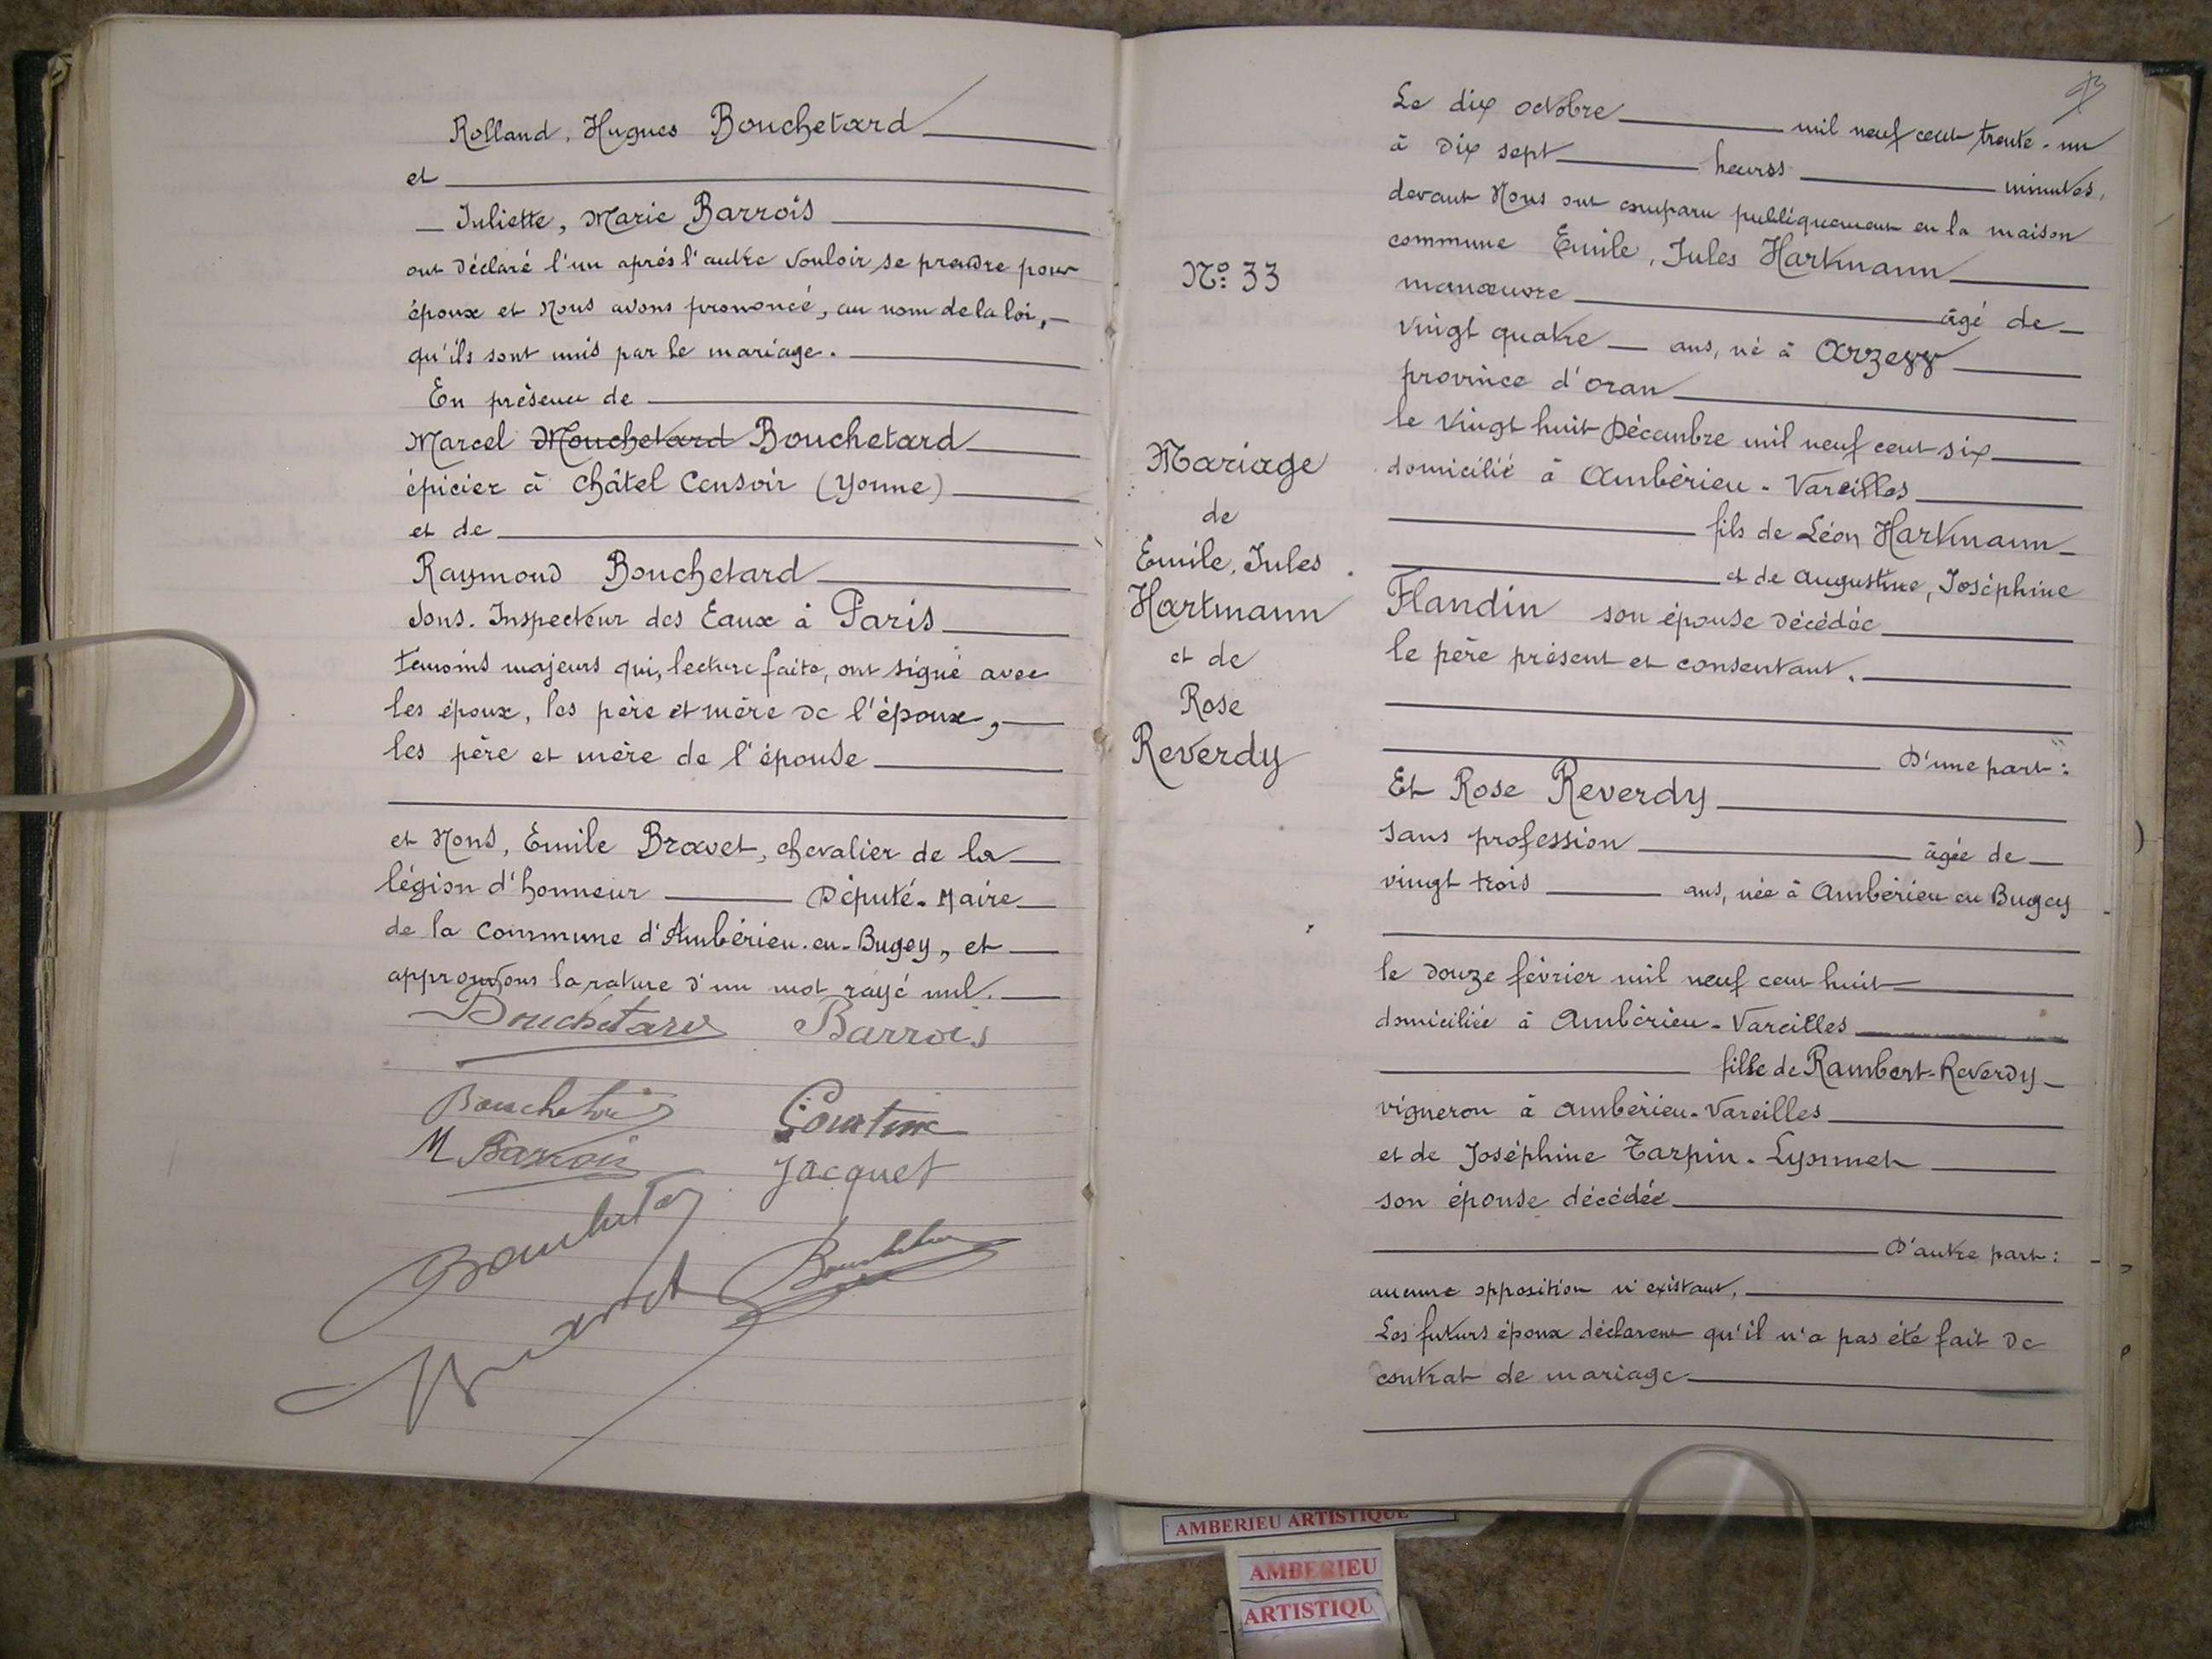 Rolland, Hugues Bouchetard
et
Juliette, Marie Barrois
ont déclaré l'un après l'autre vouloir se prendre pour
époux et Nous avons prononcé, au nom de la loi,
qu'ils sont unis par le mariage.
En présence de
Marcel Mouchetard Bouchetard
épicier à Châtel Censoir (Yonne)
et de
Raymond Bouchetard
Sous. Inspecteur des Eaux à Paris
témoins majeurs qui, lecture faite, ont signé avec
les époux, les père et mère de l'époux,
les père et mère de l'épouse
et Nous, Emile Bravet, chevalier de la
légion d'honneur Député-Maire
de la Commune d'Ambérieu-en-Bugey, et
approuvons la rature d'un mot rayé nul.
Bouchetard Barrois
M Barrois
Jacquet
Le dix octobre mil neuf cent trente-un
à dix sept heures minutes,
devant Nous ont comparu publiquement en la maison
commune Emile, Jules Hartmann
manœuvre âgé de
vingt quatre ans, né à Arzew
province d'oran
le vingt huit Décembre mil neuf cent six
domicilié à Ambérieu-Vareilles
fils de Léon Hartmann
et de Augustine, Joséphine
Flandin son épouse décédée
le père présent et consentant.
D'une part:
Et Rose Reverdy
sans profession âgée de
vingt trois ans, née à Ambérieu en Bugey
le douze février mil neuf cent huit
domiciliée à Ambérieu-Vareilles
fille de Rambert-Reverdy
vigneron à ambérieu-Vareilles
et de Joséphine Tarpin-Lyonnet
son épouse décédée
D'autre part:
aucune opposition n'existant,
Les futurs époux déclarent qu'il n'a pas été fait de
contrat de mariage
N° 33
Mariage
de
Emile, Jules
Hartmann
et de
Rose
Reverdy
AMBERIEU ARTISTIQUE
AMBERIEU
ARTISTIQU